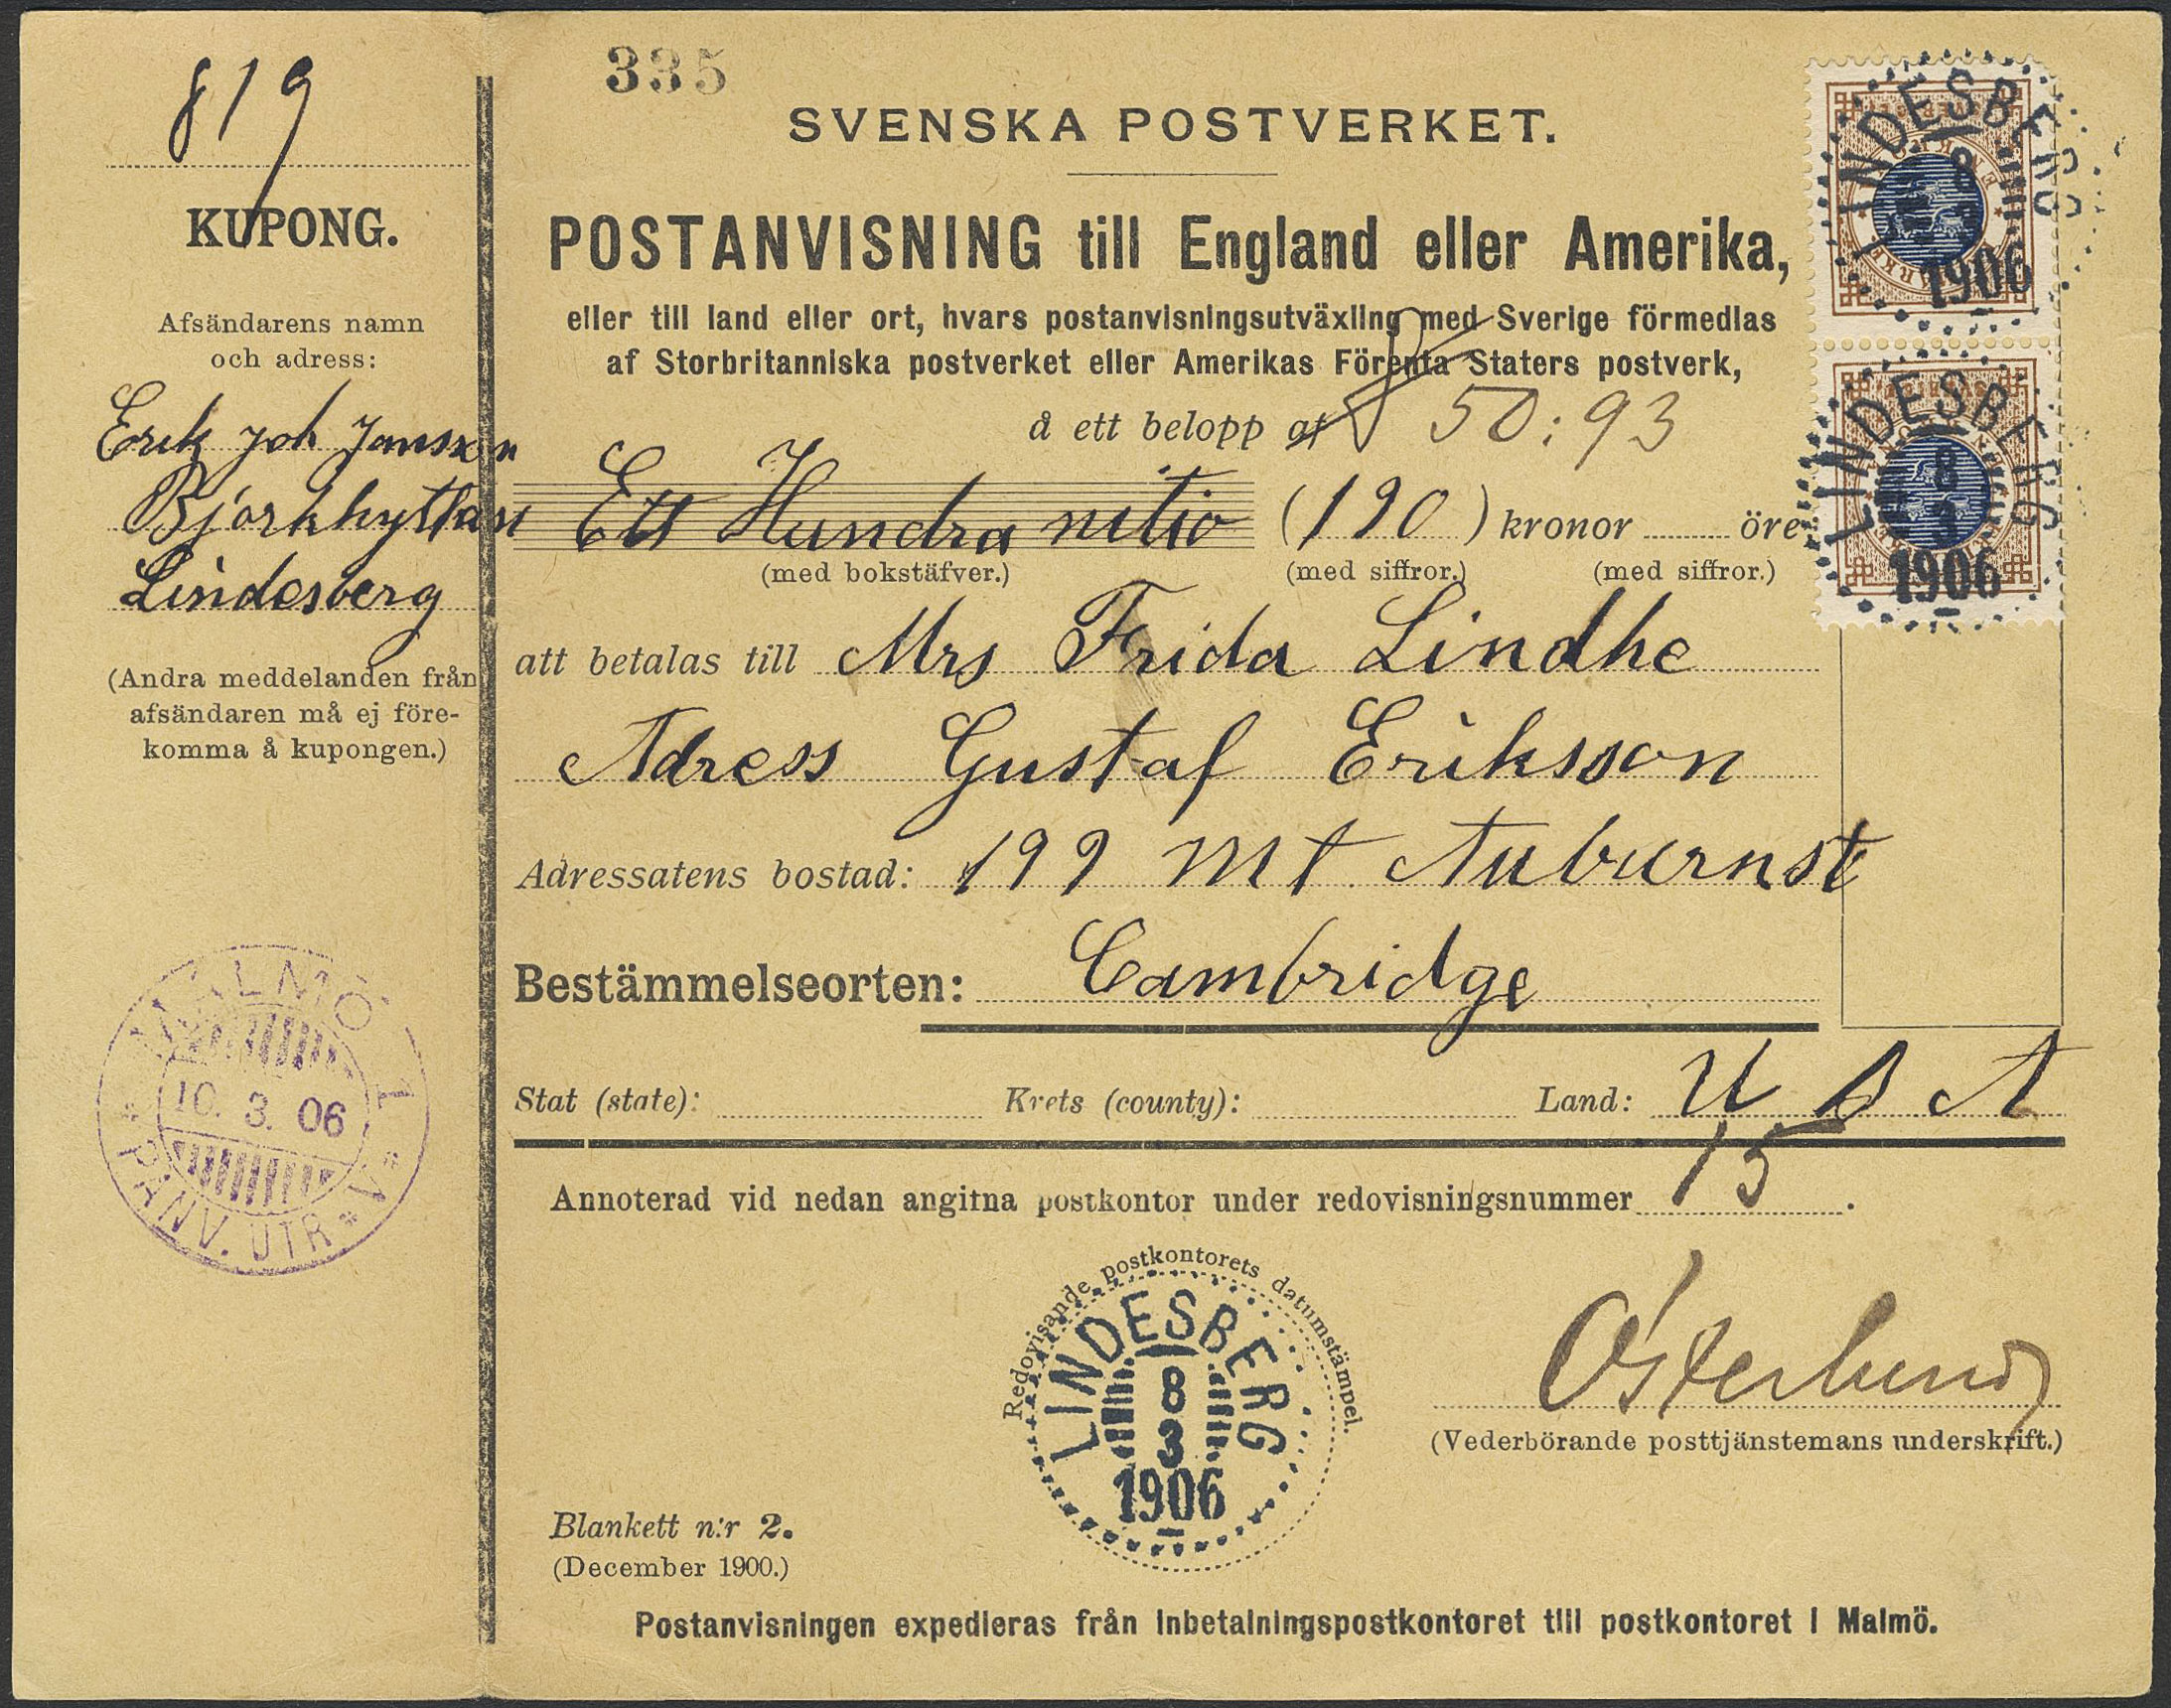 819
KUPONG.
Afsändarens namn
och adress:
Erik Joh Jansson
Björkhyttan
Lindesberg
(Andra meddelanden från
afsändaren må ej före-
komma å kupongen.)
MALMÖ 1
10. 3. 06
PANV. UTR * V *
335
SVENSKA POSTVERKET.
POSTANVISNING till England eller Amerika,
eller till land eller ort, hvars postanvisningsutväxling med Sverige förmedlas
af Storbritanniska postverket eller Amerikas Förenta Staters postverk,
å ett belopp af 50:93
Ett Hundra nitio (190) kronor öre
(med bokstäfver.) (med siffror.) (med siffror.)
att betalas till Mrs Frida Lindhe
Adress Gustaf Eriksson
Adressatens bostad: 199 Mt Auburnst
Bestämmelseorten: Cambridge
Stat (state): Krets (county): Land: U S A
Annoterad vid nedan angifna postkontor under redovisningsnummer 15.
Redovisande postkontorets datumstämpel.
LINDESBERG
8
3
1906
Österlund
(Vederbörande posttjänstemans underskrift.)
Blankett n:r 2.
(December 1900.)
Postanvisningen expedieras från inbetalningspostkontoret till postkontoret i Malmö.
LINDESBERG
8
3
1906
LINDESBERG
8
3
1906